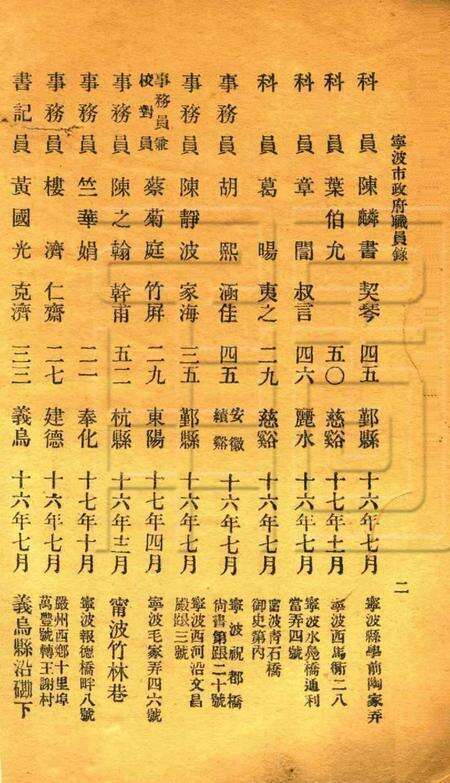 寧波市政府職員錄
二
科員 陳麟書 契琴 四五 鄞縣 十六年七月 寧波縣學前陶家弄
科員 葉伯允 五〇 慈谿 十七年十一月 寧波西馬衙二八
科員 章誾 叔言 四六 麗水 十六年七月 寧波水鳧橋通利當弄四號
科員 葛暘 夷之 二九 慈谿 十六年七月 甯波青石橋御史第內
事務員 胡熙 涵佳 四五 安徽績谿 十六年七月 寧波祝都橋尙書第跟二十號
事務員 陳靜波 家海 三五 鄞縣 十六年七月 寧波西河沿文昌殿跟三號
事務員兼校對員 蔡菊庭 竹屏 二九 東陽 十七年四月 寧波毛家弄四六號
事務員 陳之翰 幹甫 五二 杭縣 十六年十二月 甯波竹林巷
事務員 竺華娟 二一 奉化 十七年十月 寧波報德橋畔八號
事務員 樓濟 仁齋 二七 建德 十六年七月 嚴州西鄉十里埠萬豐號轉王謝村
書記員 黃國光 克濟 三三 義烏 十六年七月 義烏縣沿磡下